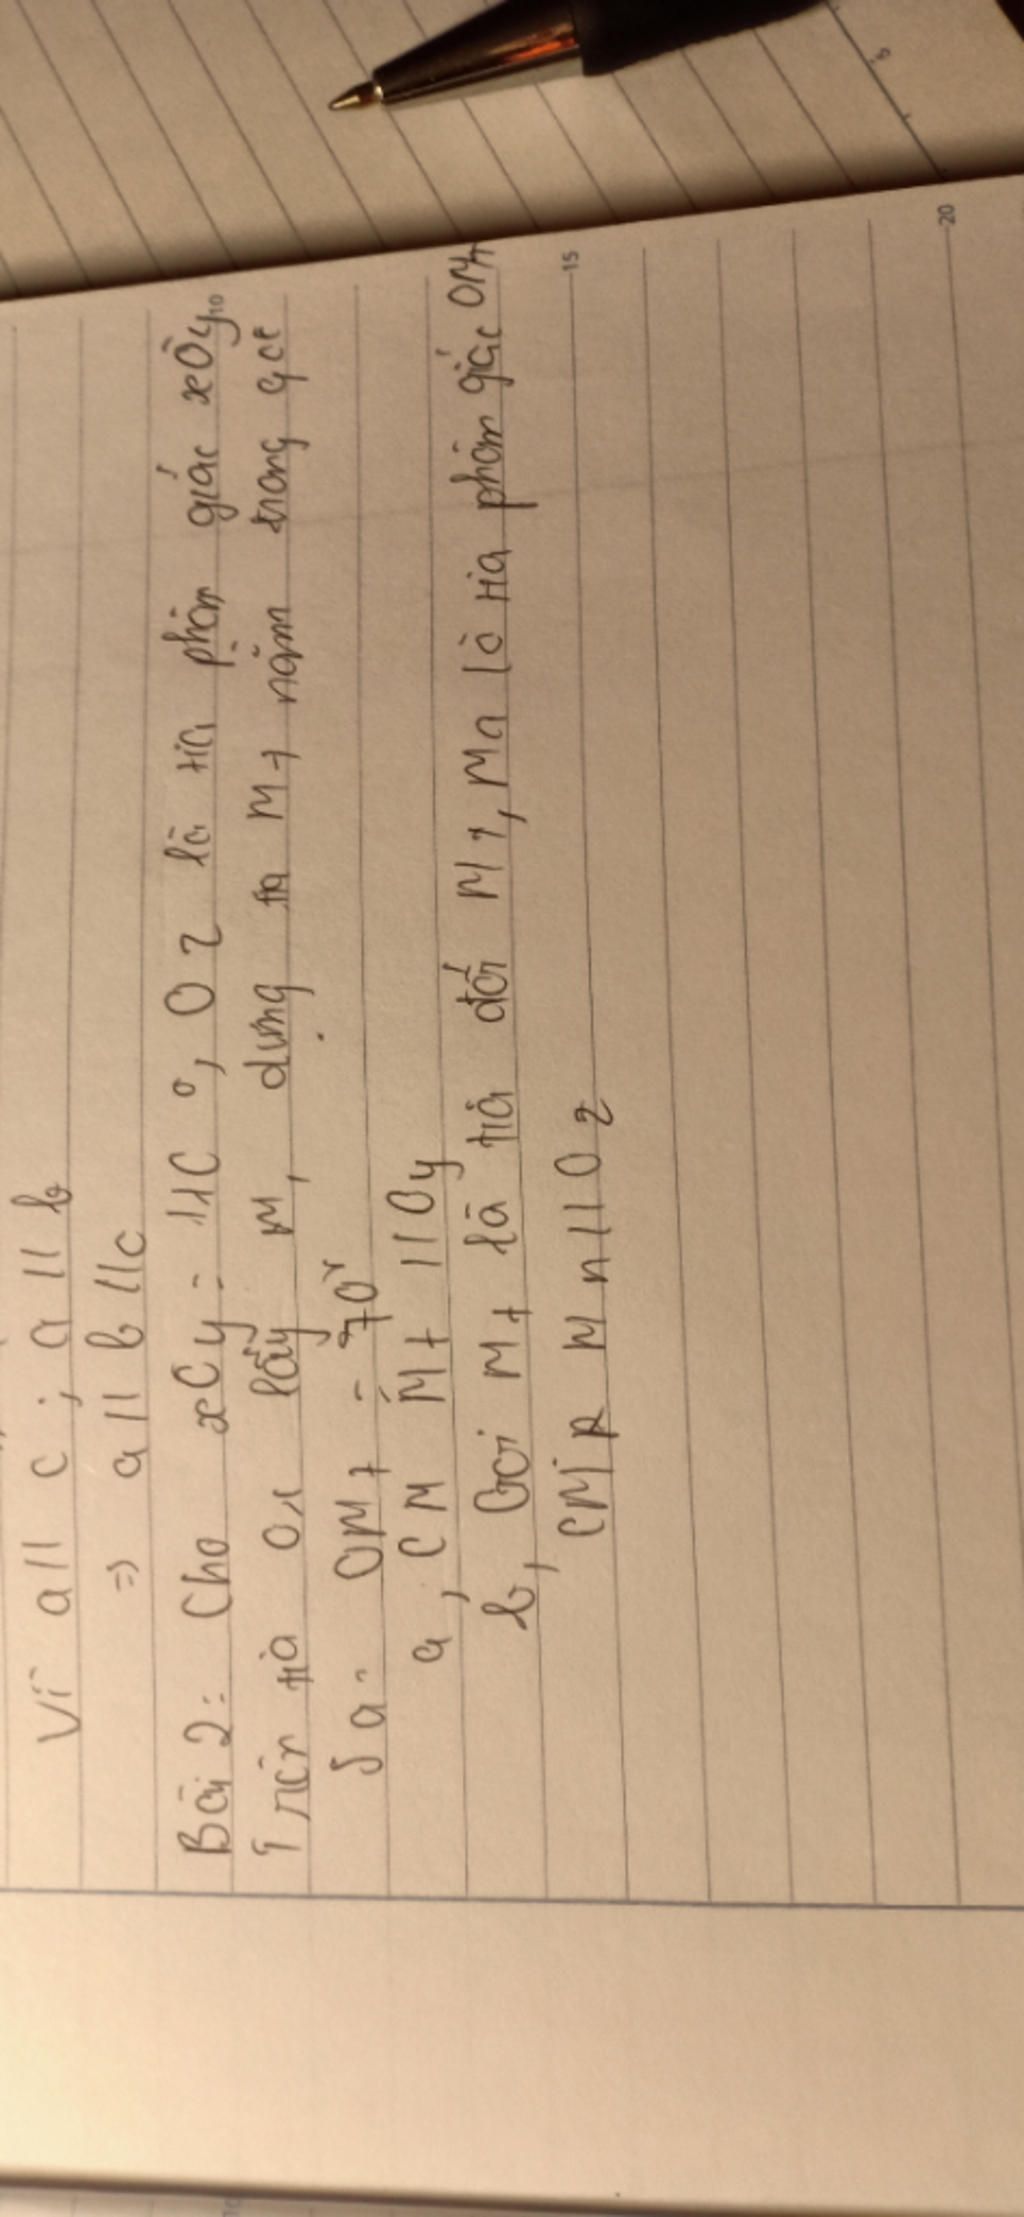 Vì a // c ; a // b
=> a // b // c
Bài 2: Cho xOy = 110°, Oz là tia phân giác xOy. 10
Trên tia Ox lấy M, dựng tia Mt nằm trong góc
sao OMt = 70°
a, CM Mt // Oy
b, Gọi Mt là tia đối Mz, Mn là tia phân giác OMt 15
CMR Mn // Oz
20